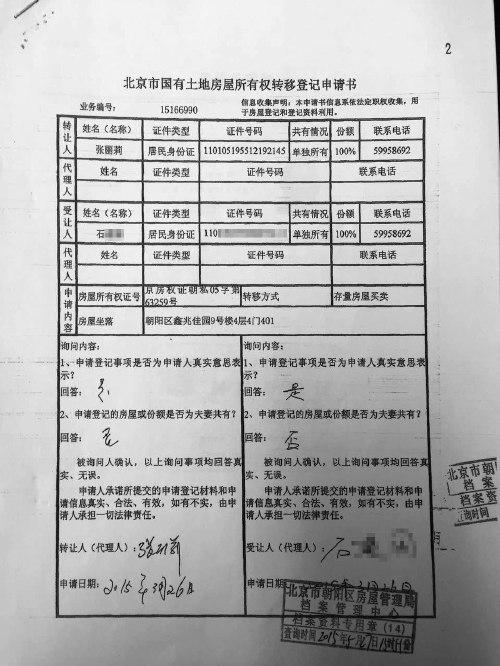 2
北京市国有土地房屋所有权转移登记申请书
业务编号： 15166990
信息收集声明：本申请书信息系依法定职权收集，用于房屋登记和登记资料利用。
转让人 姓名（名称） 证件类型 证件号码 共有情况 份额 联系电话
张丽莉 居民身份证 110105195512192145 单独所有 100% 59958692
代理人 姓名 证件类型 证件号码 联系电话
受让人 姓名（名称） 证件类型 证件号码 共有情况 份额 联系电话
石 居民身份证 110 单独所有 100% 59958692
代理人 姓名 证件类型 证件号码 联系电话
申请内容 房屋所有权证号 京房权证朝私05字第63259号 转移方式 存量房屋买卖
房屋坐落 朝阳区鑫兆佳园9号楼4层4门401
询问内容：
1、申请登记事项是否为申请人真实意思表示？
回答：
2、申请登记的房屋或份额是否为夫妻共有？
回答：
被询问人确认，以上询问事项均回答真实、无误。
申请人承诺所提交的申请登记材料和申请信息真实、合法、有效，如有不实，由申请人承担一切法律责任。
转让人（代理人）： 张丽莉
申请日期： 2015年3月26日
询问内容：
1、申请登记事项是否为申请人真实意思表示？
回答： 是
2、申请登记的房屋或份额是否为夫妻共有？
回答： 否
被询问人确认，以上询问事项均回答真实、无误。
申请人承诺所提交的申请登记材料和申请信息真实、合法、有效，如有不实，由申请人承担一切法律责任。
受让人（代理人）： 石
申请日期：
北京市朝阳区房屋管理局
档案管理中心
档案资料专用章（14）
查询时间 2015年
北京市朝
档案
档案资
查询时间